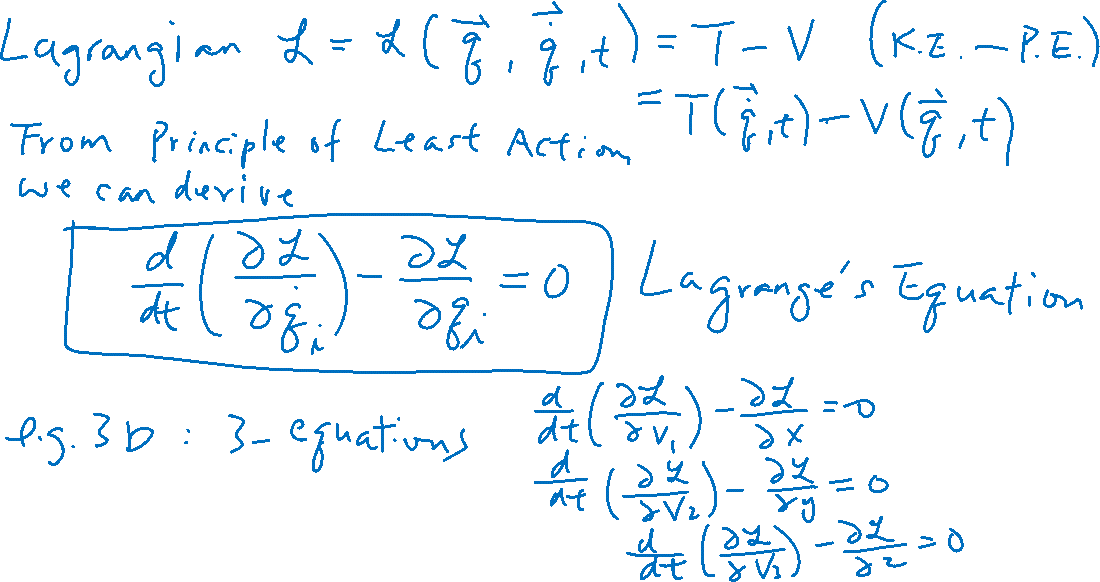 Lagrangian ℒ = ℒ(q⃗, q̇⃗, t) = T − V (K.E. − P.E.)
= T(q̇⃗, t) − V(q⃗, t)
From Principle of Least Action
we can derive
d/dt (∂ℒ/∂q̇ᵢ) − ∂ℒ/∂qᵢ = 0 Lagrange's Equation
e.g. 3D : 3-equations d/dt (∂ℒ/∂V₁) − ∂ℒ/∂x = 0
d/dt (∂ℒ/∂V₂) − ∂ℒ/∂y = 0
d/dt (∂ℒ/∂V₃) − ∂ℒ/∂z = 0